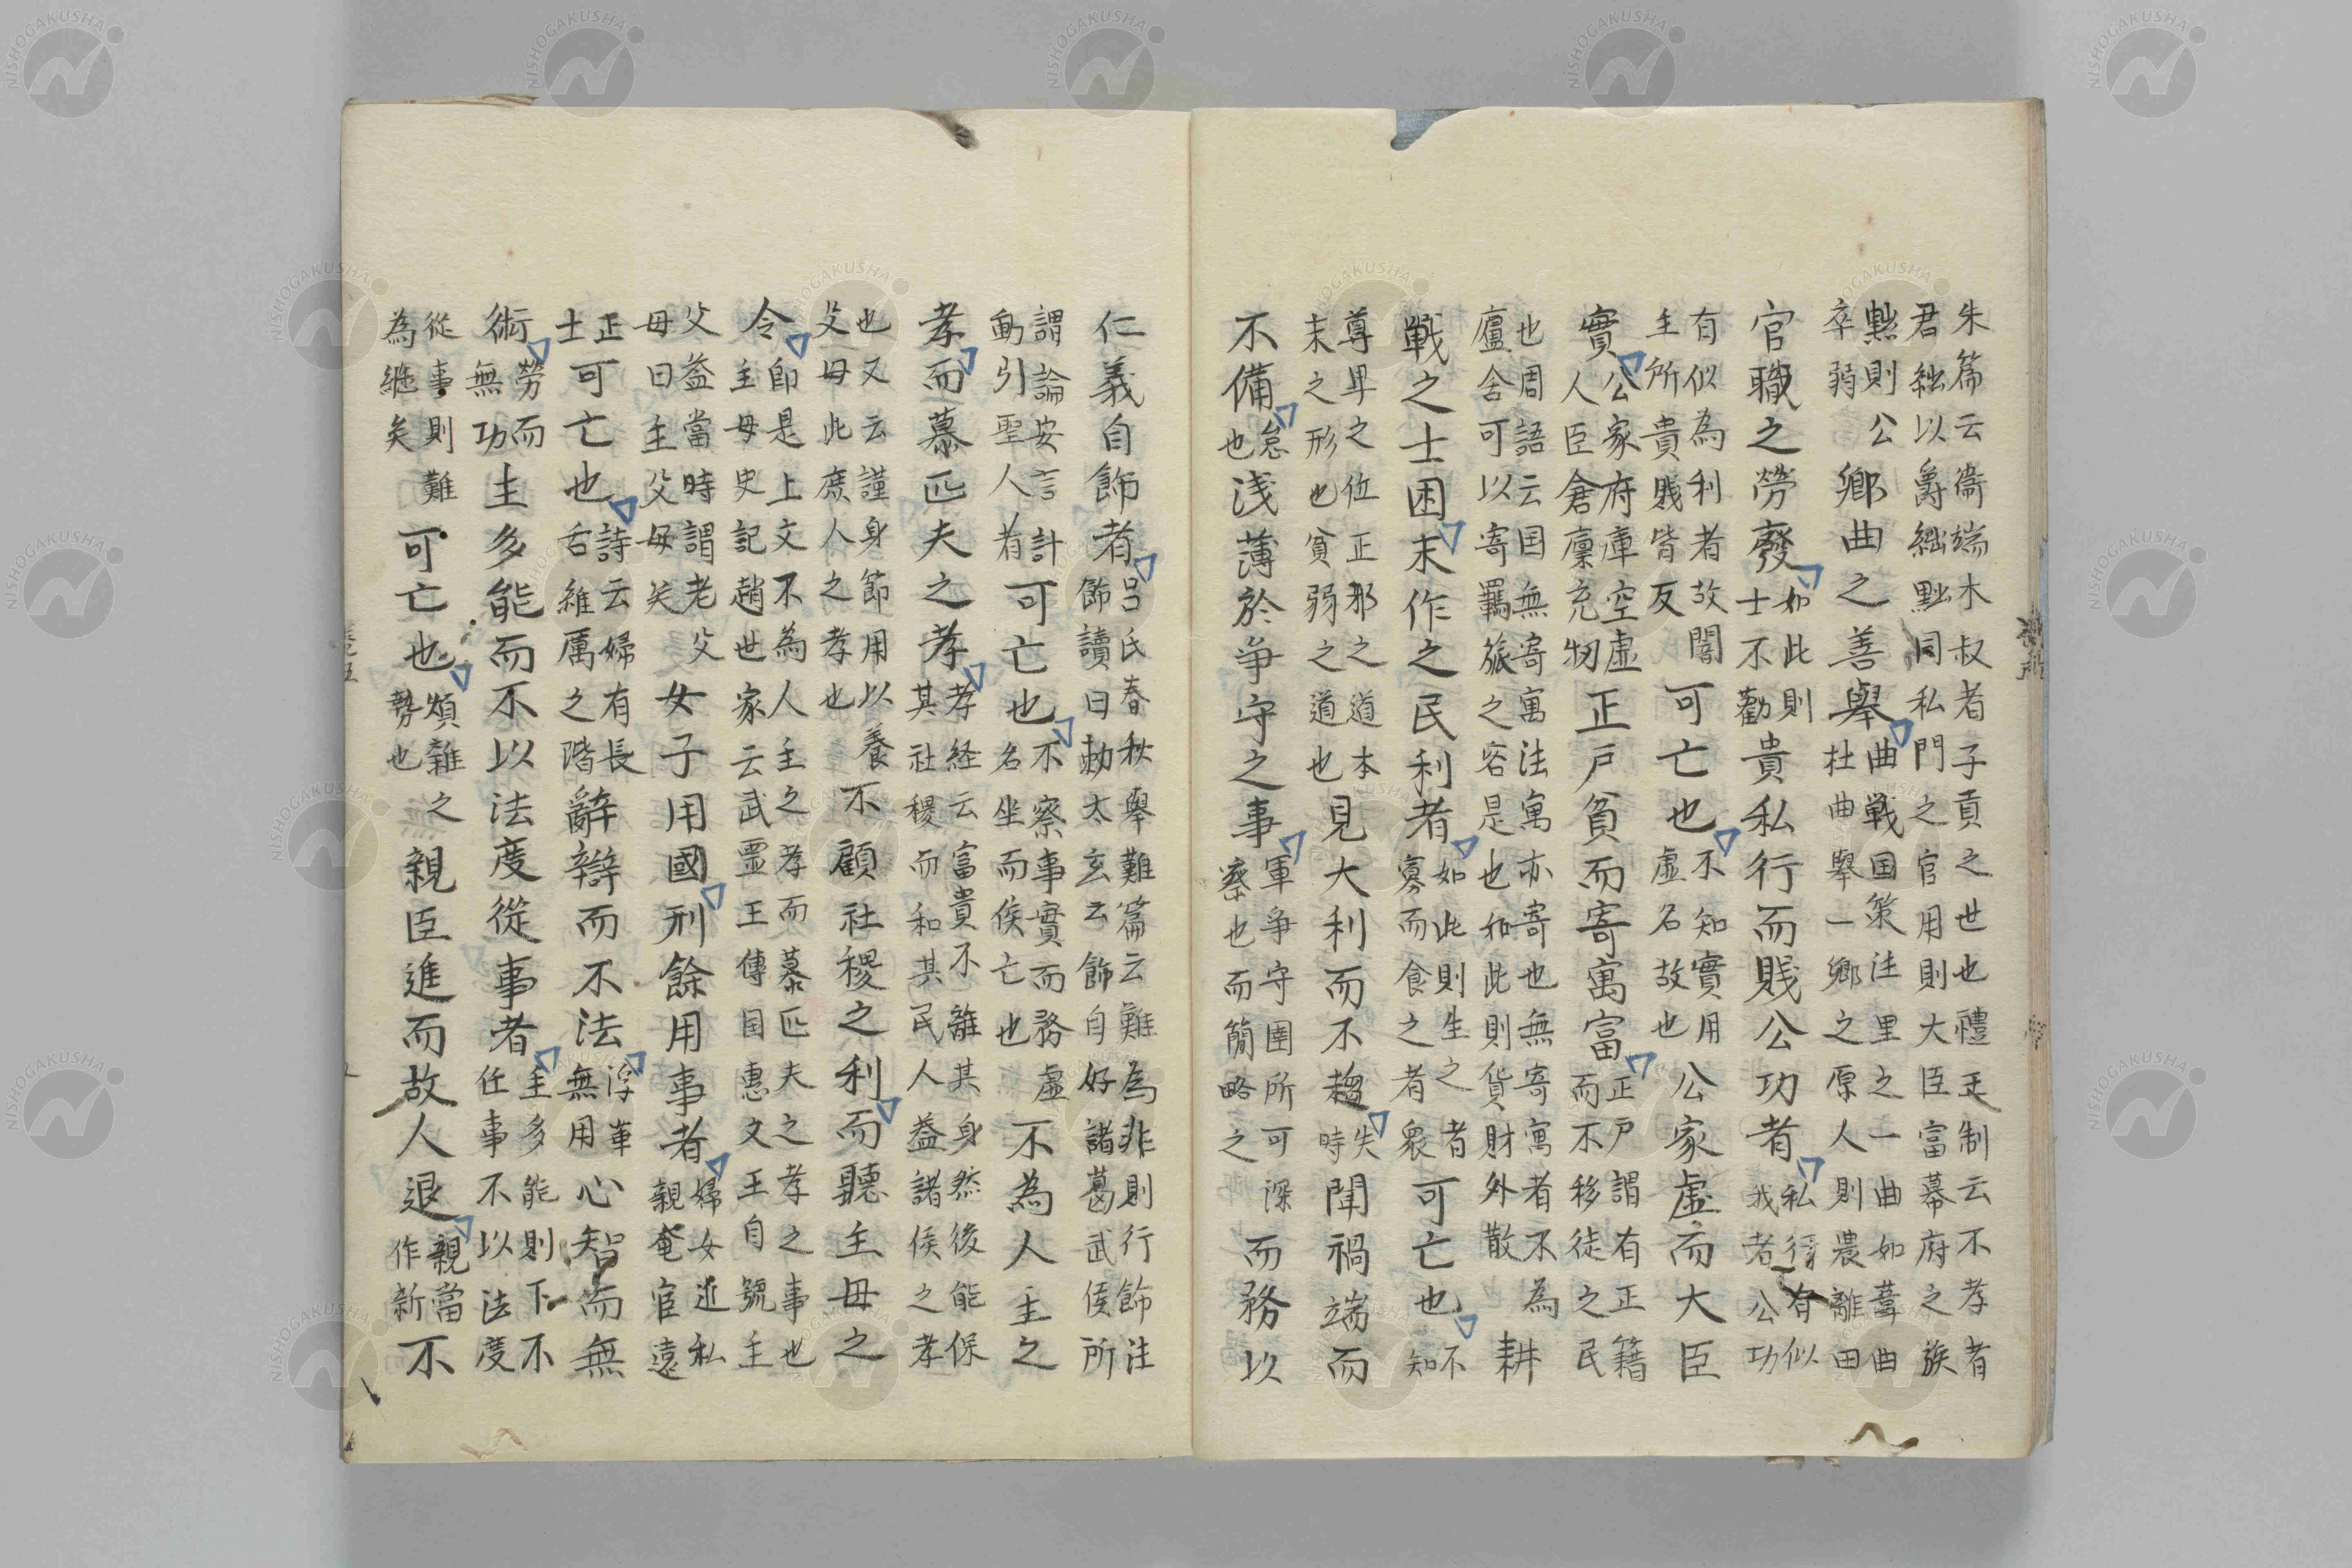 朱篇云衞端木叔者子貢之世也禮王制云不孝者
君絀以爵絀黜同私門之官用則大臣富幕府之族
黜則公鄉曲之善舉曲戰国策注里之一曲如韋曲
卒弱杜曲舉一鄉之原人則農離田
官職之勞廢如此則士不勸貴私行而賤公功者私行有似我者公功
有似為利者故闇主所貴賤皆反可亡也不知實用虛名故也公家虛而大臣
實公家府庫空虛人臣倉廩充物正戸貧而寄寓富正戸謂有正籍而不移徒之民
也周語云国無寄寓注寓亦寄也無寄寓者不為
廬舍可以寄羈旅之容是也如此則貨財外散耕
戰之士困末作之民利者如此則生之者寡而食之者衆可亡也不知
尊卑之位正邪之道本末之形也貧弱之道也見大利而不趨失時聞禍端而
不備怠也淺薄於爭守之事軍爭守圉所可深察也而簡略之而務以
仁義自飾者呂氏春秋舉難篇云難為非則行飾注
飾讀曰勅太玄云飾自好諸葛武侯所
謂論安言計動引聖人者可亡也不察事實而務虛名坐而俟亡也不為人主之
孝而慕匹夫之孝孝経云富貴不離其身然後能保其社稷而和其民人益諸侯之孝
也又云謹身節用以養父母此庶人之孝也不顧社稷之利而聽主母之
令即是上文不為人主之孝而慕匹夫之孝之事也
主母史記趙世家云武霊王傳国惠文王自號主
父益當時謂老父母曰主父母矣女子用國刑餘用事者婦女近私親奄宦遠
正士可亡也詩云婦有長舌維厲之階辭辯而不法浮華無用心智而無
術勞而無功主多能而不以法度從事者主多能則下不任事不以法度
從事則難為継矣可亡也煩雜之勢也親臣進而故人退親當作新不